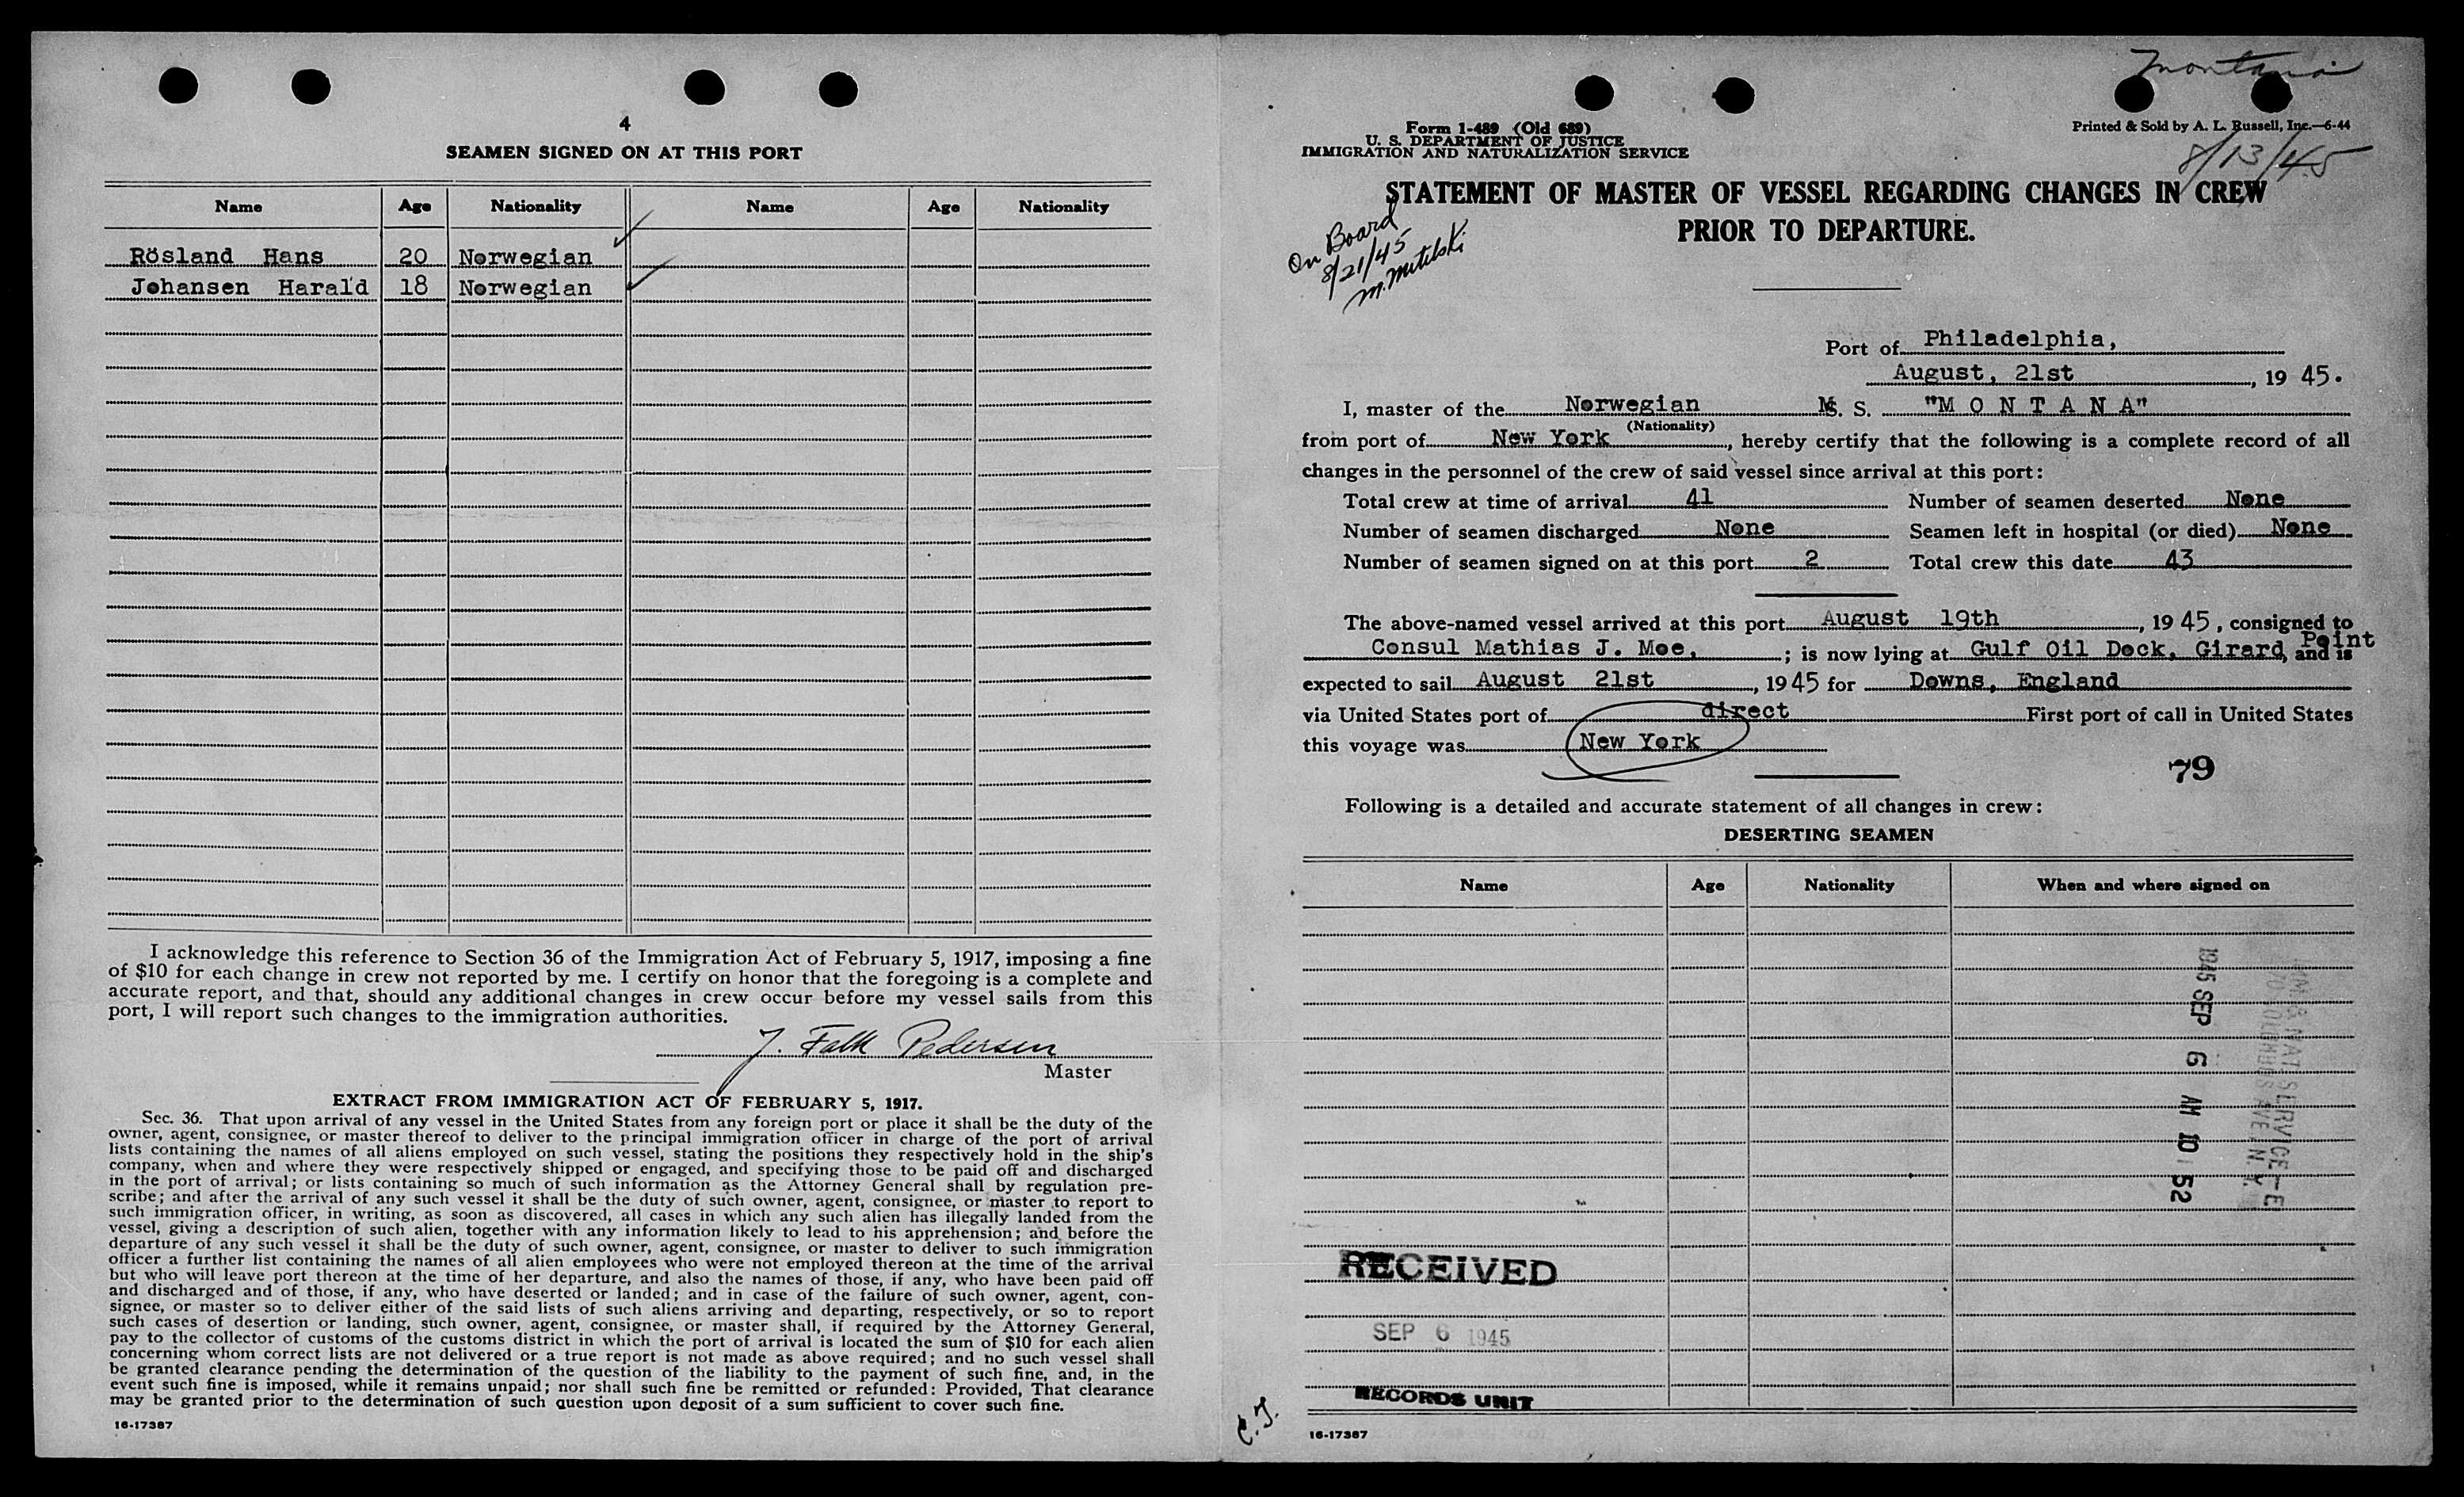 4
SEAMEN SIGNED ON AT THIS PORT
Name Age Nationality Name Age Nationality
Rösland Hans 20 Norwegian
Johansen Harald 18 Norwegian
I acknowledge this reference to Section 36 of the Immigration Act of February 5, 1917, imposing a fine
of $10 for each change in crew not reported by me. I certify on honor that the foregoing is a complete and
accurate report, and that, should any additional changes in crew occur before my vessel sails from this
port, I will report such changes to the immigration authorities.
J. Falk Pedersen
Master
EXTRACT FROM IMMIGRATION ACT OF FEBRUARY 5, 1917.
Sec. 36. That upon arrival of any vessel in the United States from any foreign port or place it shall be the duty of the
owner, agent, consignee, or master thereof to deliver to the principal immigration officer in charge of the port of arrival
lists containing the names of all aliens employed on such vessel, stating the positions they respectively hold in the ship's
company, when and where they were respectively shipped or engaged, and specifying those to be paid off and discharged
in the port of arrival; or lists containing so much of such information as the Attorney General shall by regulation pre-
scribe; and after the arrival of any such vessel it shall be the duty of such owner, agent, consignee, or master to report to
such immigration officer, in writing, as soon as discovered, all cases in which any such alien has illegally landed from the
vessel, giving a description of such alien, together with any information likely to lead to his apprehension; and before the
departure of any such vessel it shall be the duty of such owner, agent, consignee, or master to deliver to such immigration
officer a further list containing the names of all alien employees who were not employed thereon at the time of the arrival
but who will leave port thereon at the time of her departure, and also the names of those, if any, who have been paid off
and discharged and of those, if any, who have deserted or landed; and in case of the failure of such owner, agent, con-
signee, or master so to deliver either of the said lists of such aliens arriving and departing, respectively, or so to report
such cases of desertion or landing, such owner, agent, consignee, or master shall, if required by the Attorney General,
pay to the collector of customs of the customs district in which the port of arrival is located the sum of $10 for each alien
concerning whom correct lists are not delivered or a true report is not made as above required; and no such vessel shall
be granted clearance pending the determination of the question of the liability to the payment of such fine, and, in the
event such fine is imposed, while it remains unpaid; nor shall such fine be remitted or refunded: Provided, That clearance
may be granted prior to the determination of such question upon deposit of a sum sufficient to cover such fine.
16-17387
Montana
Form 1-489 (Old 689)
U. S. DEPARTMENT OF JUSTICE
IMMIGRATION AND NATURALIZATION SERVICE
Printed & Sold by A. L. Russell, Inc.—6-44
8/13/45
STATEMENT OF MASTER OF VESSEL REGARDING CHANGES IN CREW
PRIOR TO DEPARTURE.
On Board
8/21/45
M. Mitelski
Port of Philadelphia,
August, 21st, 19 45.
I, master of the Norwegian M. S. "M O N T A N A"
(Nationality)
from port of New York, hereby certify that the following is a complete record of all
changes in the personnel of the crew of said vessel since arrival at this port:
Total crew at time of arrival 41 Number of seamen deserted None
Number of seamen discharged None Seamen left in hospital (or died) None
Number of seamen signed on at this port 2 Total crew this date 43
The above-named vessel arrived at this port August 19th, 19 45, consigned to
Consul Mathias J. Moe, ; is now lying at Gulf Oil Dock, Girard Point, and is
expected to sail August 21st, 19 45 for Downs, England
via United States port of direct First port of call in United States
this voyage was New York
79
Following is a detailed and accurate statement of all changes in crew:
DESERTING SEAMEN
Name Age Nationality When and where signed on
1945 SEP 6 AM 10 52
RECEIVED
SEP 6 1945
RECORDS UNIT
C.J.
16-17387